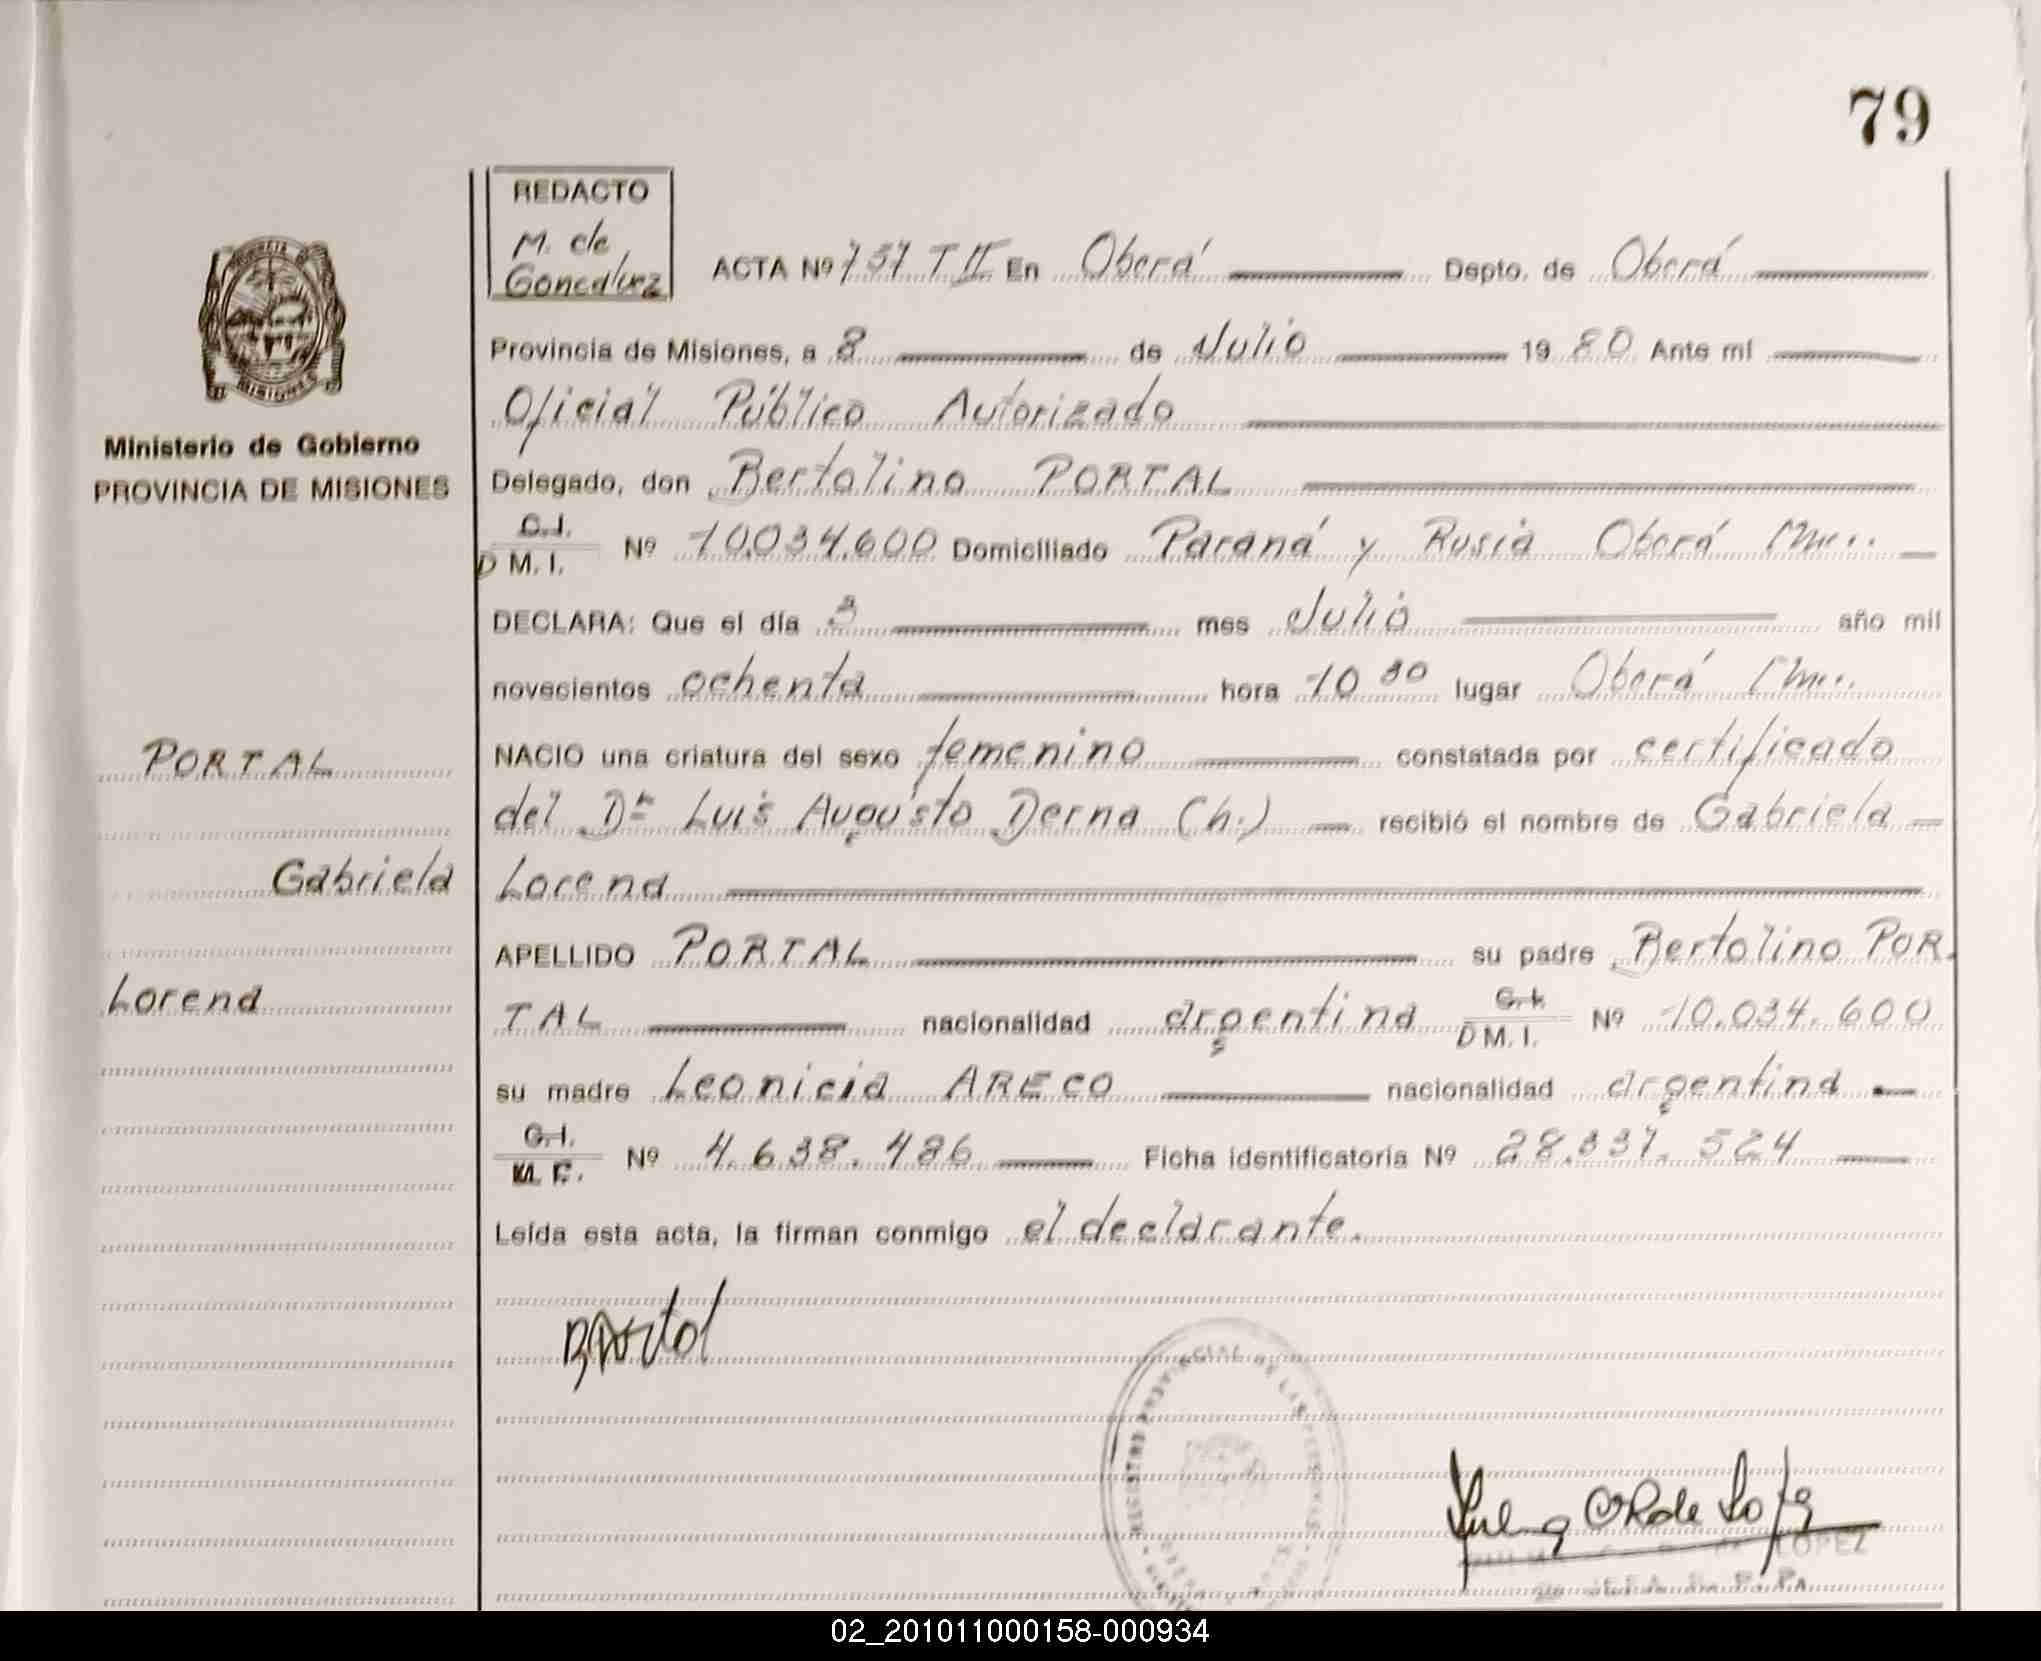 79
REDACTO
M. de
Goncalvez
ACTA Nº 737 T II En Oberá Depto. de Oberá
Provincia de Misiones, a 8 de Julio 19 80 Ante mí
Oficial Público Autorizado
Ministerio de Gobierno
PROVINCIA DE MISIONES
Delegado, don Bertolino PORTAL
C.I.
D M. I. Nº 10.034.600 Domiciliado Paraná y Rusia Oberá
DECLARA: Que el día 3 mes Julio año mil
novecientos ochenta hora 10 30 lugar Oberá
PORTAL
NACIO una criatura del sexo femenino constatada por certificado
del Dr Luis Augusto Derna (h.) recibió el nombre de Gabriela
Gabriela
Lorena
APELLIDO PORTAL su padre Bertolino POR.
Lorena
TAL nacionalidad argentina C.I. D M. I. Nº 10.034.600
su madre Leonicia ARECO nacionalidad argentina
C.I.
M. F. Nº 4.638.486 Ficha identificatoria Nº 28.337.524
Leída esta acta, la firman conmigo el declarante.
REGISTRO PROVINCIAL DE LAS PERSONAS
LOPEZ
02_201011000158-000934